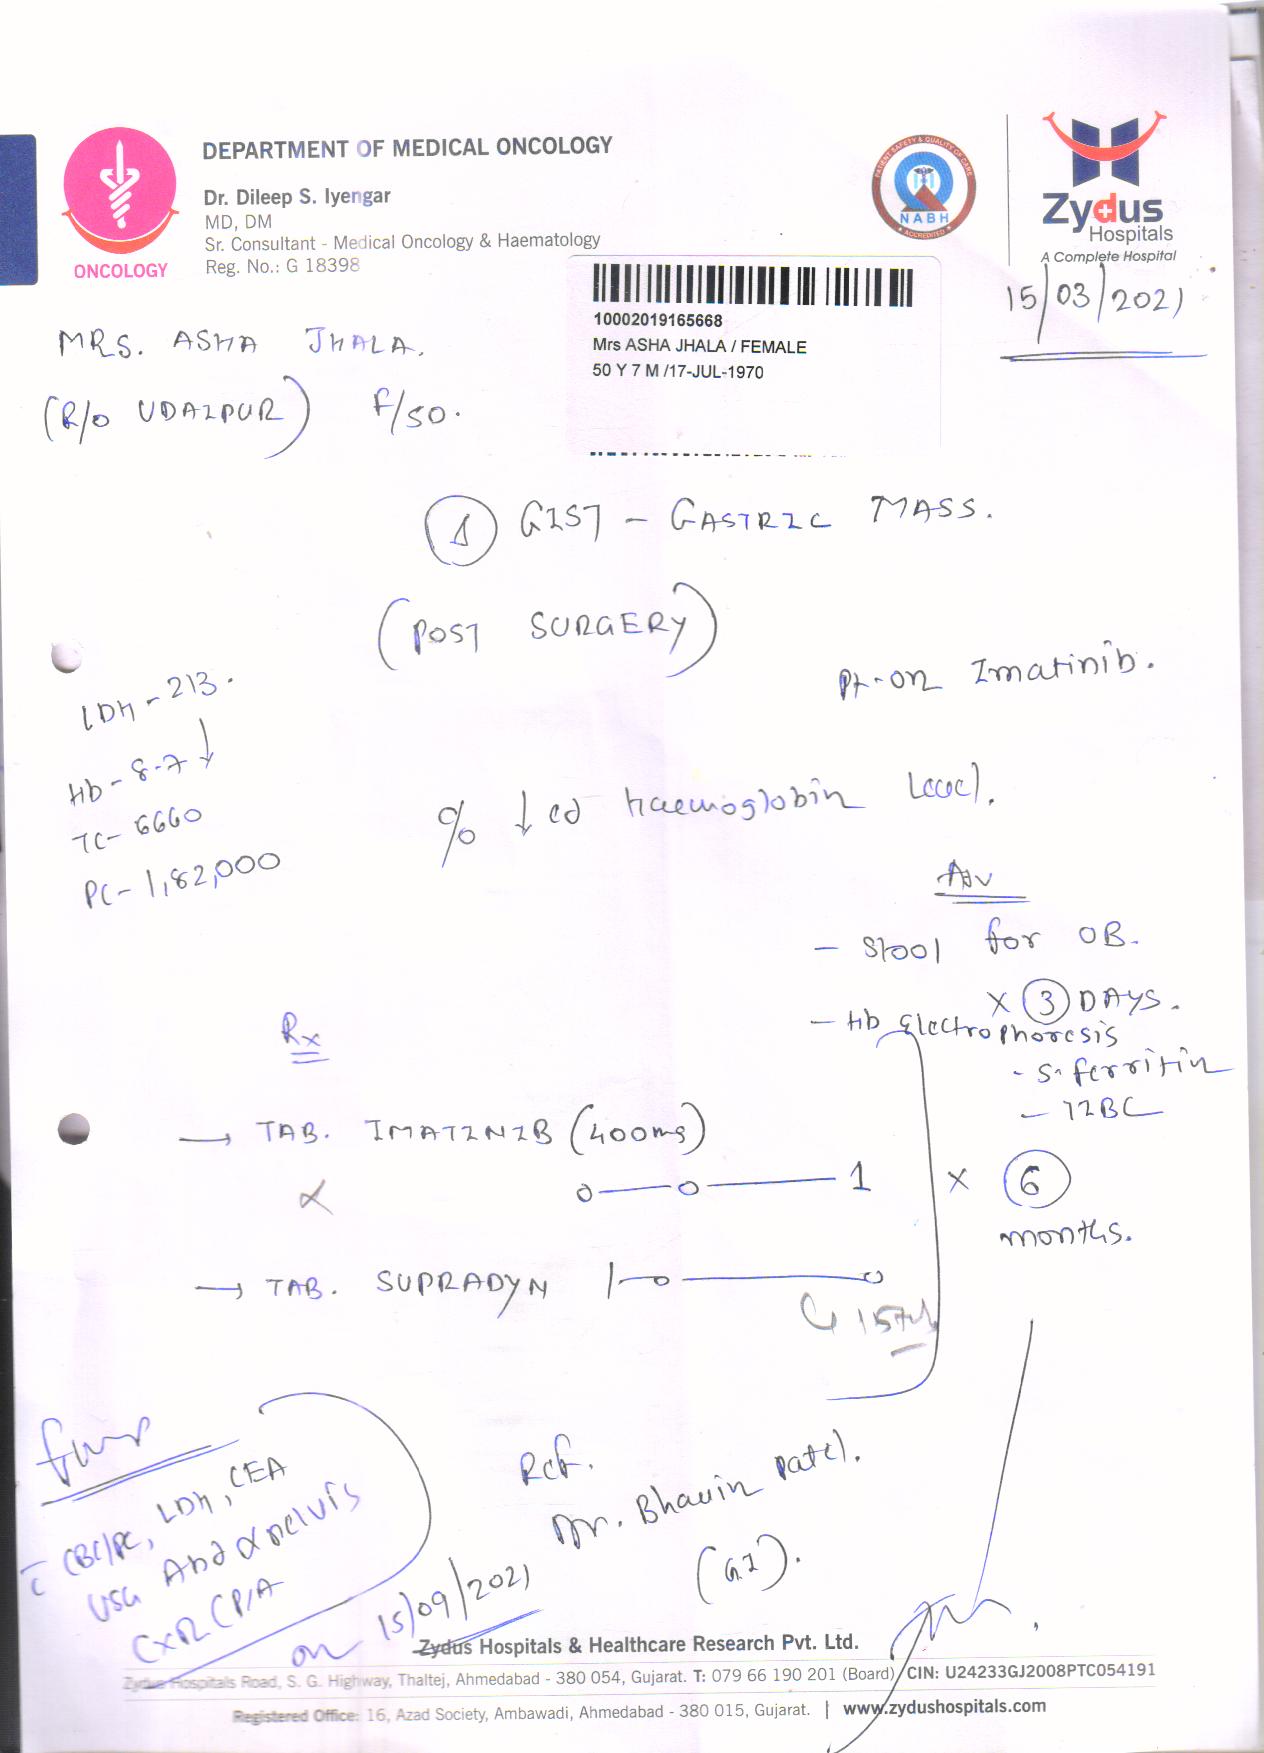 DEPARTMENT OF MEDICAL ONCOLOGY
Dr. Dileep S. Iyengar
MD, DM
Sr. Consultant - Medical Oncology & Haematology
Reg. No.: G 18398
ONCOLOGY
PATIENT SAFETY & QUALITY OF CARE
NABH
ACCREDITED
Zydus
Hospitals
A Complete Hospital
15/03/2021
10002019165668
Mrs ASHA JHALA / FEMALE
50 Y 7 M /17-JUL-1970
MRS. ASHA JHALA.
(R/O UDAIPUR) F/50.
1 GIST - GASTRIC MASS.
(POST SURGERY)
Pt-on Imatinib.
LDH - 213.
Hb - 8.7 ↓
TC - 6660
PC - 1,82,000
% ↓ed haemoglobin level.
Adv
- Stool for OB.
X 3 DAYS.
- Hb Electrophoresis
- S. ferritin
- TIBC
Rx
→ TAB. IMATINIB (400mg)
0—0—1
X 6
months.
→ TAB. SUPRADYN 1—0—0
CBC/PC, LDH, CEA
USG Abd & pelvis
CXR (P/A
on 15/09/2021
Ref.
Dr. Bhavin Patel.
(G.I).
Zydus Hospitals & Healthcare Research Pvt. Ltd.
Zydus Hospitals Road, S. G. Highway, Thaltej, Ahmedabad - 380 054, Gujarat. T: 079 66 190 201 (Board) CIN: U24233GJ2008PTC054191
Registered Office: 16, Azad Society, Ambawadi, Ahmedabad - 380 015, Gujarat. | www.zydushospitals.com